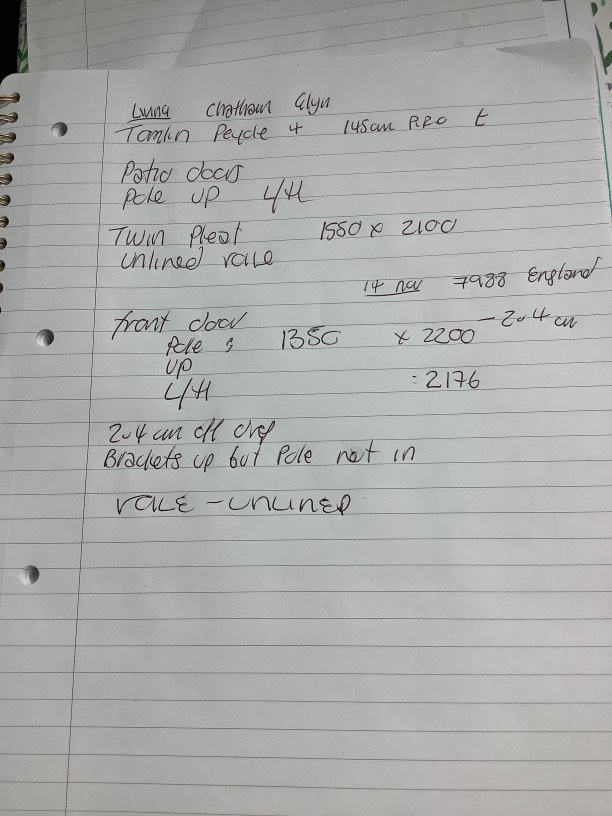 Luna Chatham Glyn
Tomlin 4 145cm RRO t
Patio doors
Pole up L/H
Twin Pleat 1550 x 2100
Unlined
14 nov 7988 England
front door
Pole 1350 x 2200 - 2.4 cm
UP
L/H : 2176
2.4 cm off drop
Brackets up but Pole not in
- UNLINED